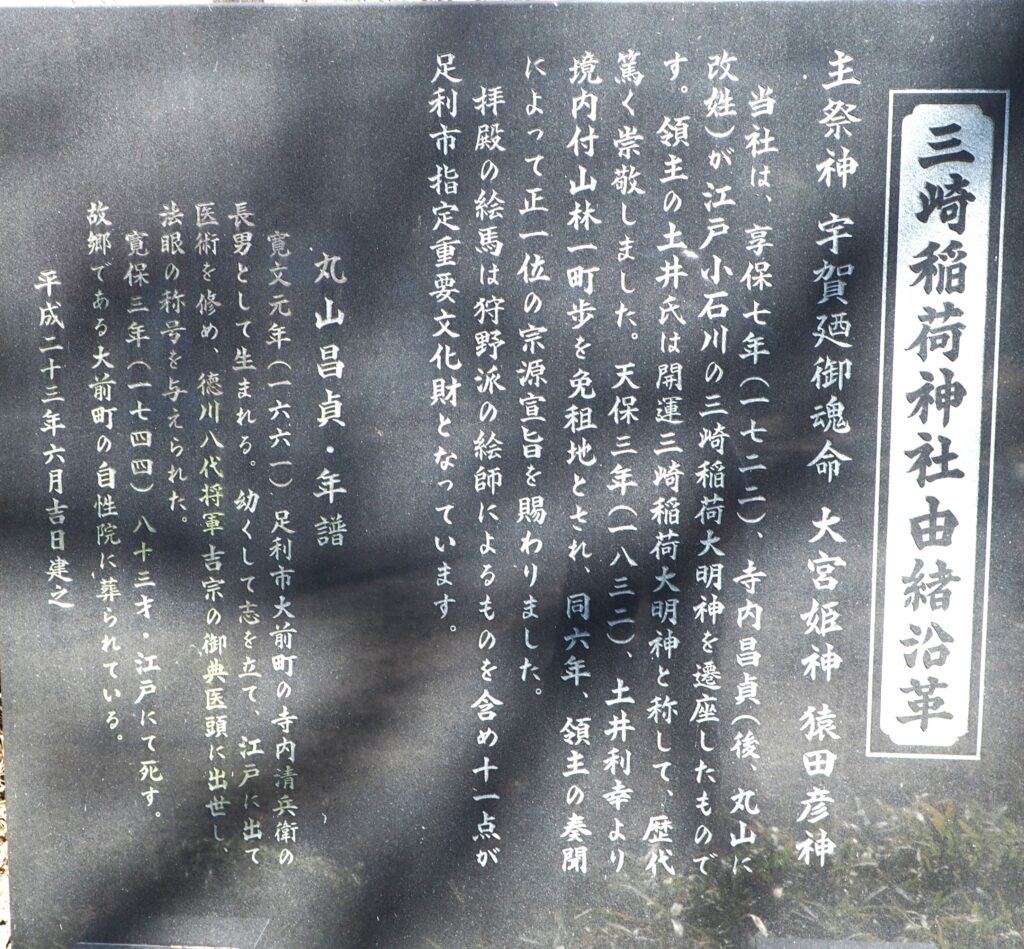 三崎稲荷神社由緒沿革
主祭神 宇賀廼御魂命 大宮姫神 猿田彦神
当社は、享保七年(一七二二)、寺内昌貞(後、丸山に
改姓)が江戸小石川の三崎稲荷大明神を遷座したもので
す。領主の土井氏は開運三崎稲荷大明神と称して、歴代
篤く崇敬しました。天保三年(一八三二)、土井利幸より
境内付山林一町歩を免租地とされ、同六年、領主の奏聞
によって正一位の宗源宣旨を賜わりました。
拝殿の絵馬は狩野派の絵師によるものを含め十一点が
足利市指定重要文化財となっています。
丸山昌貞・年譜
寛文元年(一六六一)足利市大前町の寺内清兵衛の
長男として生まれる。幼くして志を立て、江戸に出て
医術を修め、徳川八代将軍吉宗の御典医頭に出世し、
法眼の称号を与えられた。
寛保三年(一七四四)八十三才・江戸にて死す。
故郷である大前町の自性院に葬られている。
平成二十三年六月吉日建之